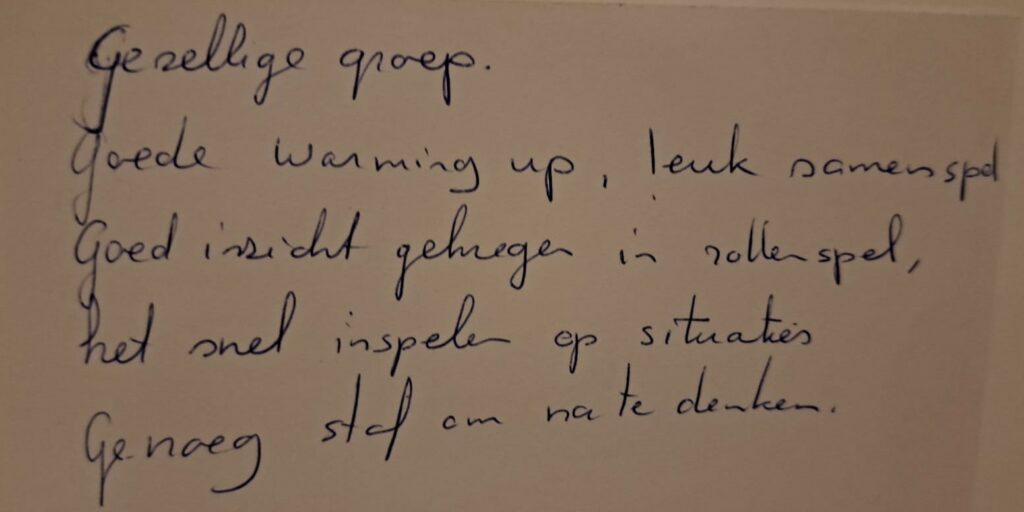 Gezellige groep.
Goede warming up, leuk samenspel
Goed inzicht gekregen in rollenspel,
het snel inspelen op situaties
Genoeg stof om na te denken.